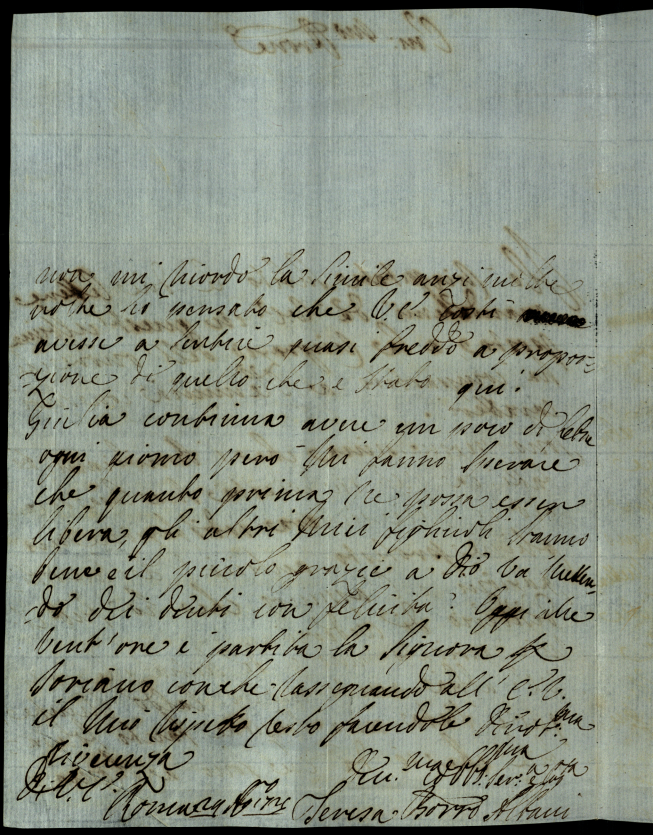 non mi ricordo la simile anzi molte
volte ho pensato che V. E. costì
avesse a sentire quasi freddo a propor-
-zione di quello che è stato qui.
Giulia continua avere un poco di febre
ogni giorno però mi fanno sperare
che quanto prima ne possa esser
libera, gli altri miei figlioli stanno
bene e il piccolo grazie a Dio va metten-
-do dei denti con felicità. Oggi alle
vent'ore è partita la Signora per
Soriano con che rassegnando all' E. V.
il mio rispetto resto facendole divot.ma
riverenza
Di V. E.
Dev.ma
Roma Teresa Borro Albani